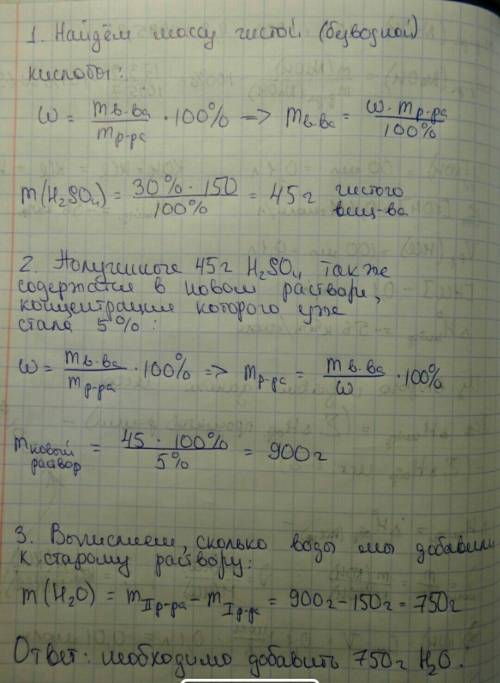 1. Найдём массу чистой (безводной)
кислоты:
ω = mв-ва / mр-ра · 100% => mв-ва = ω · mр-ра / 100%
m(H₂SO₄) = 30% · 150 / 100% = 45г чистого вещ-ва
2. Полученные 45г H₂SO₄ также
содержатся в новом растворе,
концентрация которого уже
стала 5%:
ω = mв-ва / mр-ра · 100% => mр-ра = mв-ва / ω · 100%
mновый раствор = 45 · 100% / 5% = 900г
3. Вычислим, сколько воды мы добавили
к старому раствору:
m(H₂O) = mIIр-ра - mIр-ра = 900г - 150г = 750г
Ответ: необходимо добавить 750г H₂O.